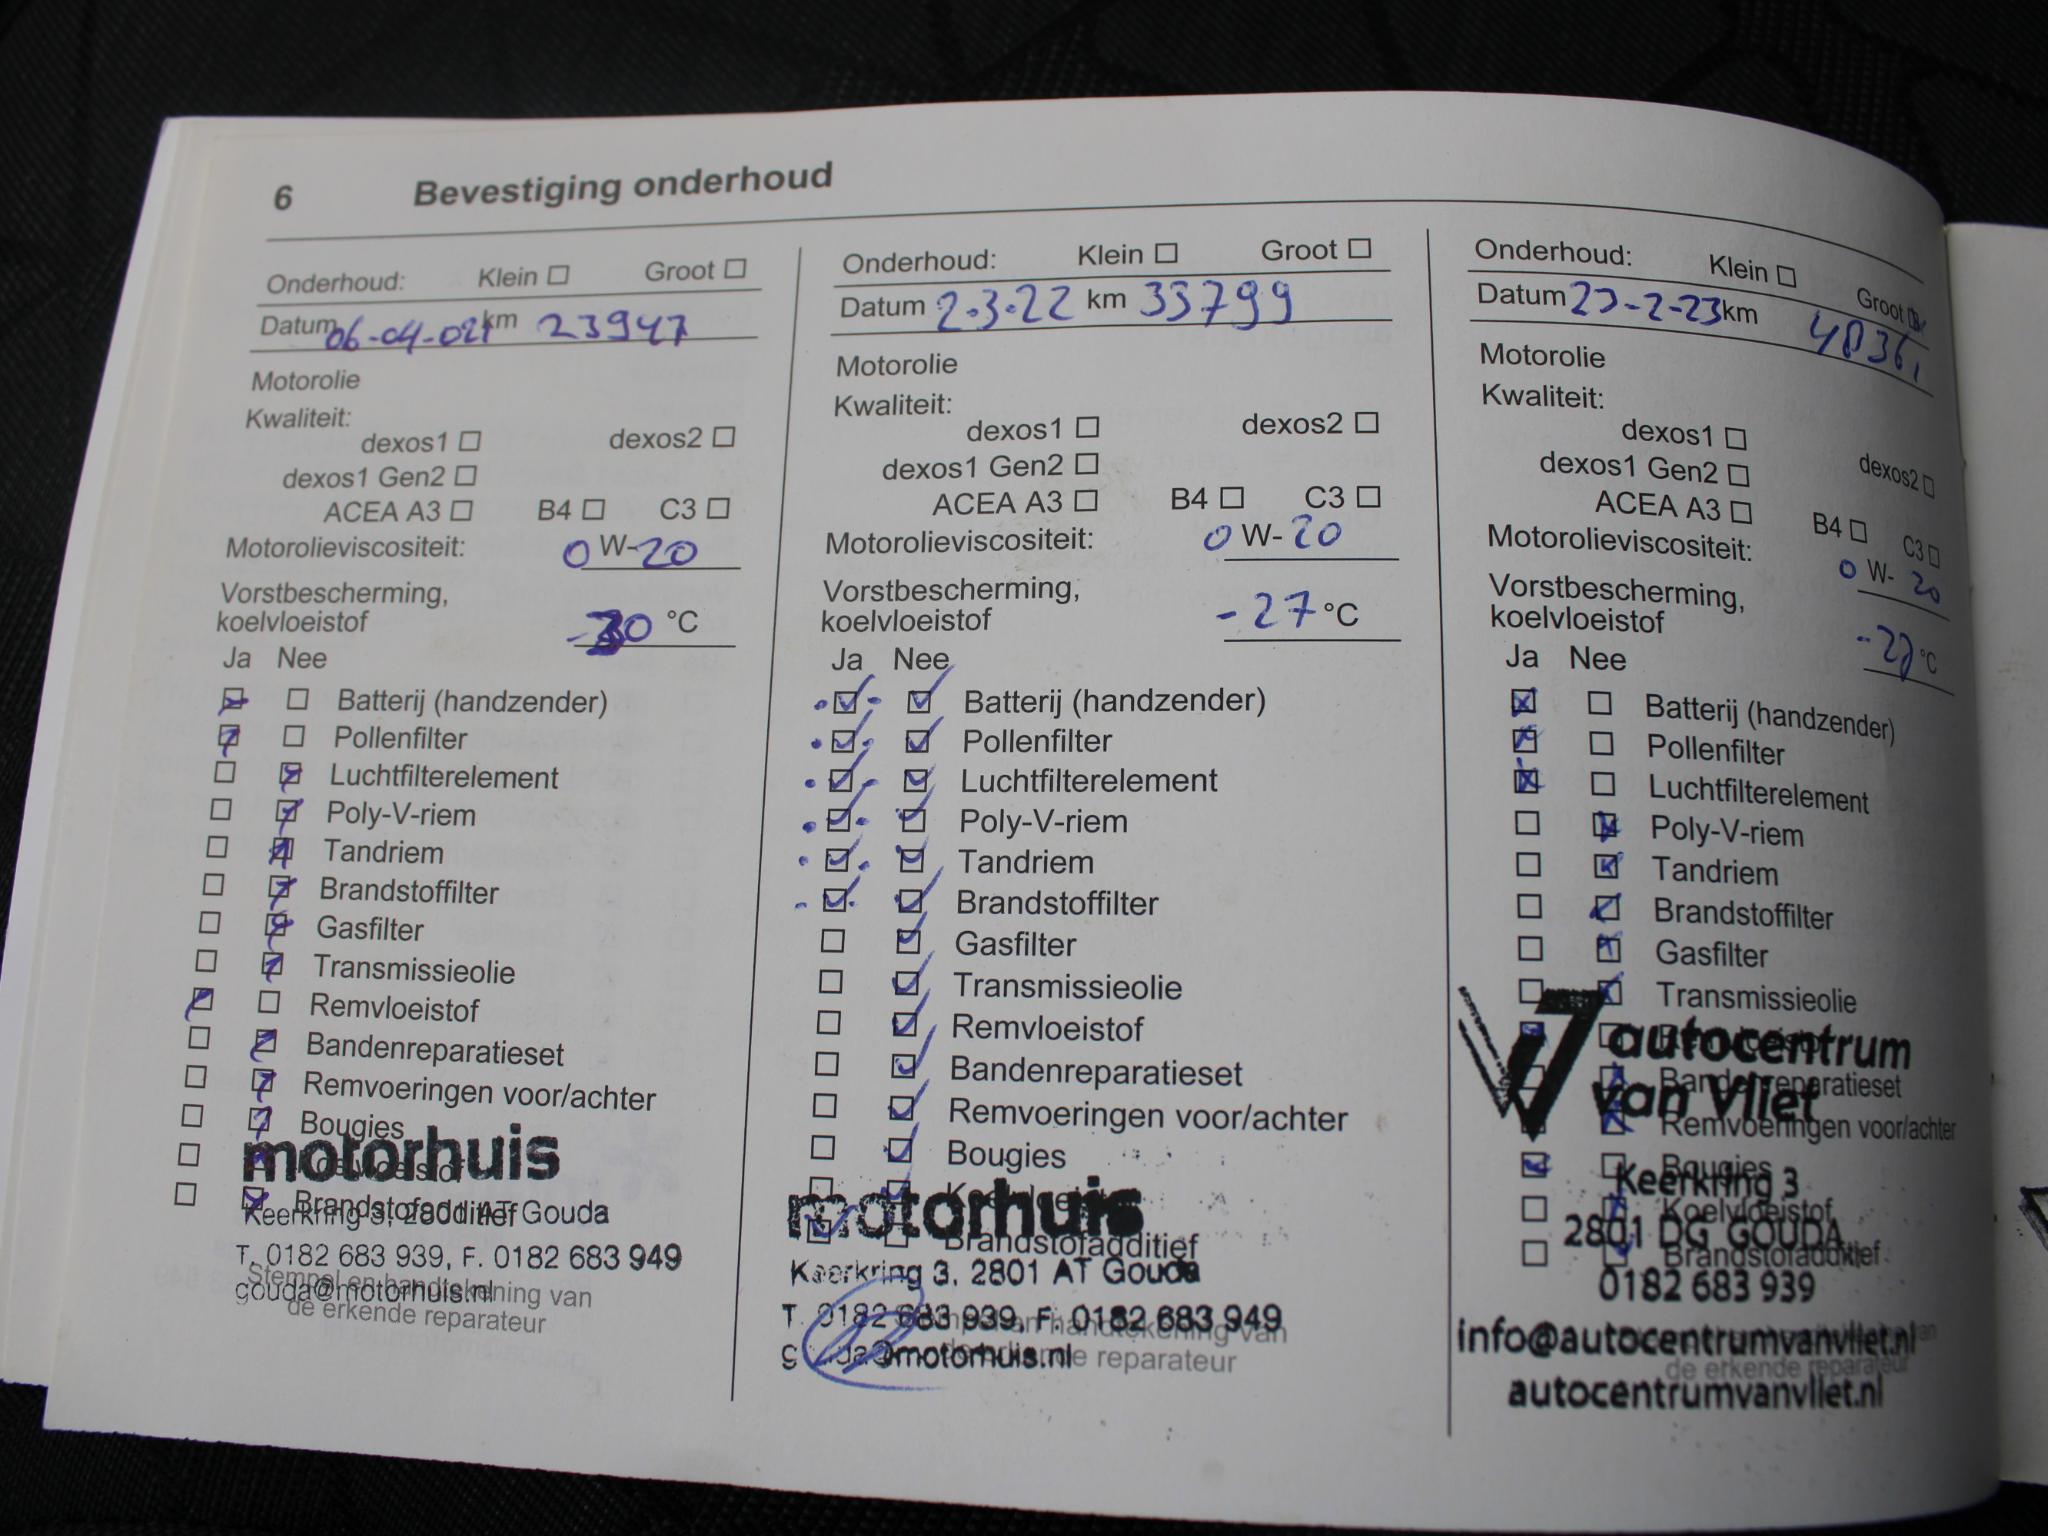 6 Bevestiging onderhoud
Onderhoud: Klein Groot
Datum 06-04-021 km 23947
Motorolie
Kwaliteit:
dexos1 dexos2
dexos1 Gen2
ACEA A3 B4 C3
Motorolieviscositeit: 0 W-20
Vorstbescherming,
koelvloeistof -30 °C
Ja Nee
Batterij (handzender)
Pollenfilter
Luchtfilterelement
Poly-V-riem
Tandriem
Brandstoffilter
Gasfilter
Transmissieolie
Remvloeistof
Bandenreparatieset
Remvoeringen voor/achter
Bougies
motorhuis
Koelvloeistof
Brandstofadditief
Keerkring 3, 2801 AT Gouda
T. 0182 683 939, F. 0182 683 949
Stempel en handtekening van
gouda@motorhuis.nl
de erkende reparateur
Onderhoud: Klein Groot
Datum 2.3.22 km 33799
Motorolie
Kwaliteit:
dexos1 dexos2
dexos1 Gen2
ACEA A3 B4 C3
Motorolieviscositeit: 0 W-20
Vorstbescherming,
koelvloeistof -27 °C
Ja Nee
Batterij (handzender)
Pollenfilter
Luchtfilterelement
Poly-V-riem
Tandriem
Brandstoffilter
Gasfilter
Transmissieolie
Remvloeistof
Bandenreparatieset
Remvoeringen voor/achter
Bougies
Koelvloeistof
motorhuis
Brandstofadditief
Keerkring 3, 2801 AT Gouda
T. 0182 683 939, F. 0182 683 949
Stempel en handtekening van
gouda@motorhuis.nl
de erkende reparateur
Onderhoud: Klein Groot
Datum 23-2-23 km
Motorolie
Kwaliteit:
dexos1 dexos2
dexos1 Gen2
ACEA A3 B4 C3
Motorolieviscositeit: 0 W-20
Vorstbescherming,
koelvloeistof °C
Ja Nee
Batterij (handzender)
Pollenfilter
Luchtfilterelement
Poly-V-riem
Tandriem
Brandstoffilter
Gasfilter
Transmissieolie
Remvloeistof
autocentrum
Bandenreparatieset
van Vliet
Remvoeringen voor/achter
Bougies
Keerkring 3
Koelvloeistof
2801 DG GOUDA
Brandstofadditief
0182 683 939
info@autocentrumvanvliet.nl
de erkende reparateur
autocentrumvanvliet.nl